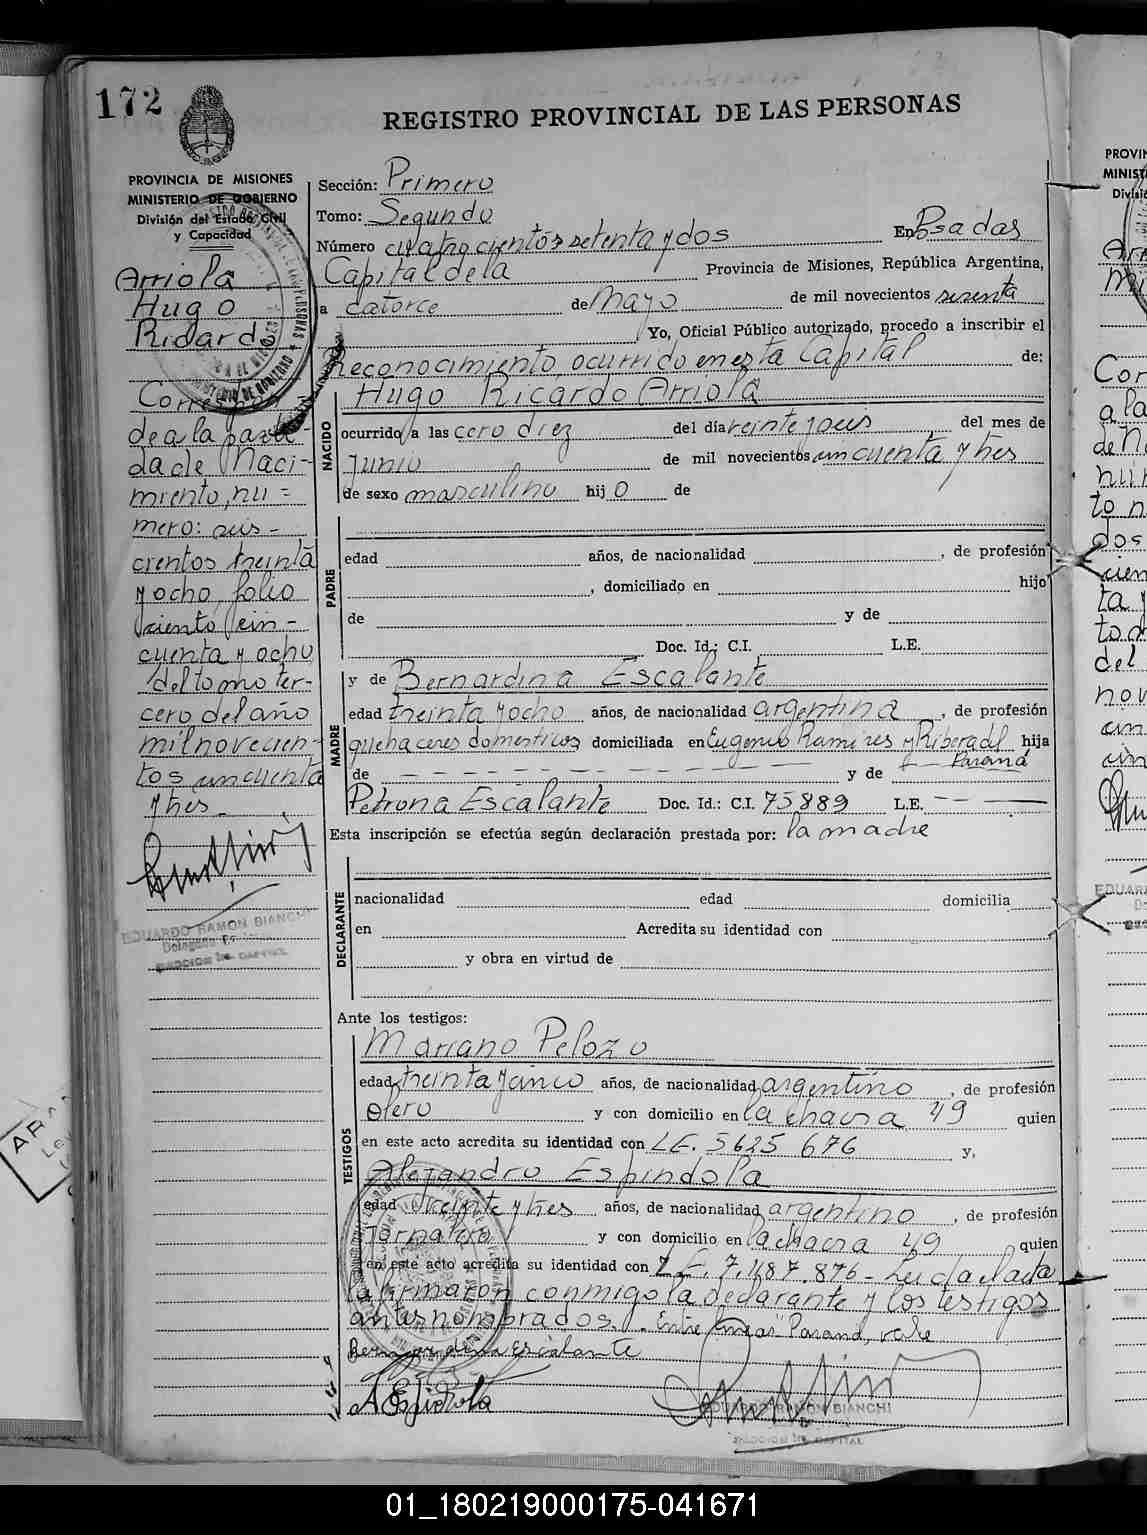 172
REGISTRO PROVINCIAL DE LAS PERSONAS
PROVINCIA DE MISIONES
MINISTERIO DE GOBIERNO
División del Estado Civil
y Capacidad
Arriola
Hugo
Ricardo
Corres
de a la parti-
da de Naci-
miento, nú=
mero: seis-
cientos treinta
y ocho, folio
ciento cin-
cuenta y ocho
del tomo ter-
cero del año
mil novecien-
tos cincuenta
y tres.
EDUARDO RAMON BIANCHI
Sección: Primero
Tomo: Segundo
Número cuatrocientos setenta y dos En Posadas
Capital de la Provincia de Misiones, República Argentina,
a catorce de Mayo de mil novecientos sesenta
Yo, Oficial Público autorizado, procedo a inscribir el
Reconocimiento, ocurrido en esta Capital de:
Hugo Ricardo Arriola
NACIDO
ocurrido a las cero diez del día veinte y seis, del mes de
Junio de mil novecientos cincuenta y tres
de sexo masculino hijo de
PADRE
edad años, de nacionalidad , de profesión
, domiciliado en hijo
de y de
Doc. Id.: C.I. L.E.
MADRE
y de Bernardina Escalante
edad treinta y ocho años, de nacionalidad argentina, de profesión
quehaceres domésticos domiciliada en Eugenio Ramires y Ribera del hija
Paraná
de y de
Petrona Escalante Doc. Id.: C.I. 75889 L.E.
Esta inscripción se efectúa según declaración prestada por: la madre
DECLARANTE
nacionalidad edad domicilia
en Acredita su identidad con
y obra en virtud de
Ante los testigos:
TESTIGOS
Mariano Pelozo
edad treinta y cinco años, de nacionalidad argentino, de profesión
olero y con domicilio en la chacra 49 quien
en este acto acredita su identidad con L.E. 5625676 y,
Alejandro Espindola
edad veinte y tres años, de nacionalidad argentino, de profesión
Jornalero y con domicilio en la chacra 49 quien
en este acto acredita su identidad con L.E. 7.487.876 - Leida el acta
la firmaron conmigo la declarante y los testigos
antes nombrados. - Entre lineas: Paraná, vale
Bernardina Escalante
A Espindola
EDUARDO RAMON BIANCHI
01_180219000175-041671